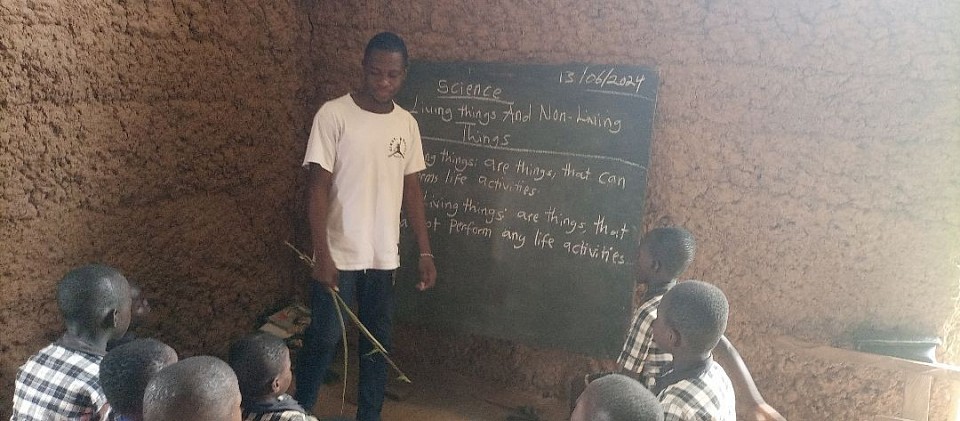 13/06/2024
Science
Living things And Non-Living
Things
things: are things, that can
life activities.
Living things: are things, that
perform any life activities.